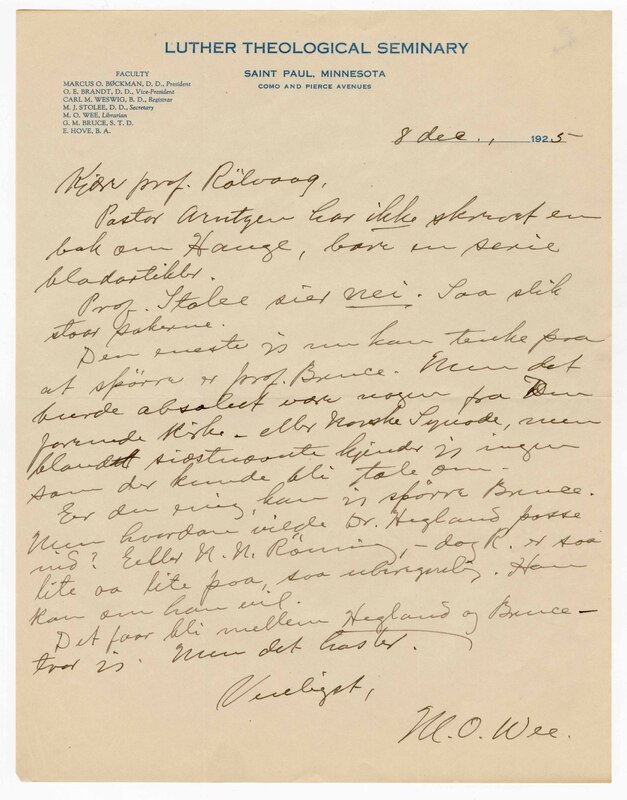 LUTHER THEOLOGICAL SEMINARY
SAINT PAUL, MINNESOTA
COMO AND PIERCE AVENUES
FACULTY
MARCUS O. BØCKMAN, D. D., President
O. E. BRANDT, D. D., Vice-President
CARL M. WESWIG, B. D., Registrar
M. J. STOLEE, D. D., Secretary
M. O. WEE, Librarian
G. M. BRUCE, S. T. D.
E. HOVE, B. A.
8 dec., 1925
Kjære prof. Rölvaag,
Pastor Arntzen har ikke skrevet en
bok om Hauge, bare en serie
bladartikler.
Prof. Stolee sier nei. Saa slik
staar sakerne.
Den eneste jeg nu kan tenke paa
at spörre er prof. Bruce. Men det
burde absolut være nogen fra Den
forenede Kirke – eller Norske Synode, men
blandt sidstnævnte kjender jeg ingen
som der kunde bli tale om.
Er du enig, kan jeg spörre Bruce.
Men hvordan vilde Dr. Hegland passe
ind? Eller N. N. Rönning, – dog R. er saa
lite aa lite paa, saa uberegnelig. Han
kan om han vil.
Det faar bli mellem Hegland og Bruce –
tror jeg. Men det haster.
Venligst,
M. O. Wee.